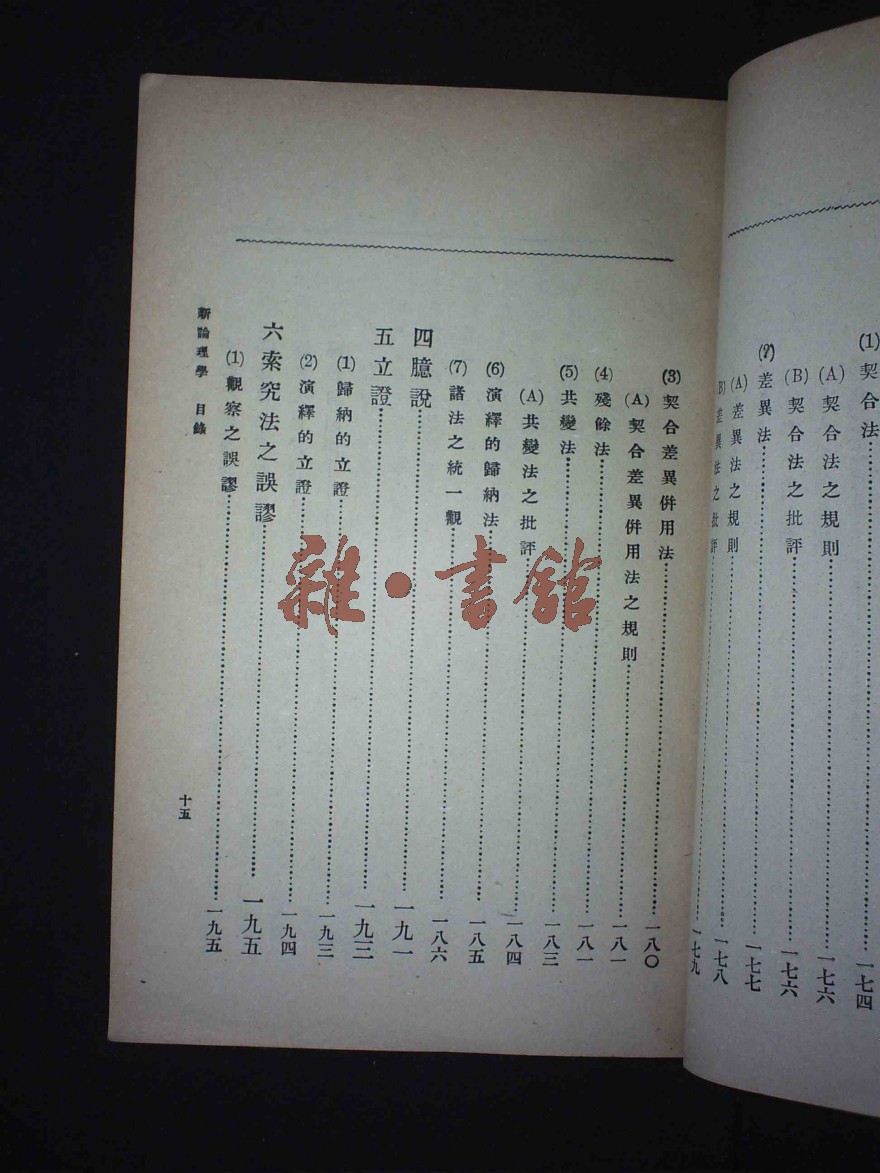 (1)契合法……一七四
(A)契合法之規則……一七六
(B)契合法之批評……一七六
(2)差異法……一七七
(A)差異法之規則……一七八
(B)差異法之批評……一七九
(3)契合差異併用法……一八〇
(A)契合差異併用法之規則……一八一
(4)殘餘法……一八一
(5)共變法……一八三
(A)共變法之批評……一八四
(6)演繹的歸納法……一八五
(7)諸法之統一觀……一八六
四臆說……一九一
五立證……一九三
(1)歸納的立證……一九三
(2)演繹的立證……一九四
六索究法之誤謬……一九五
(1)觀察之誤謬……一九五
新論理學 目錄
十五
雜·書館